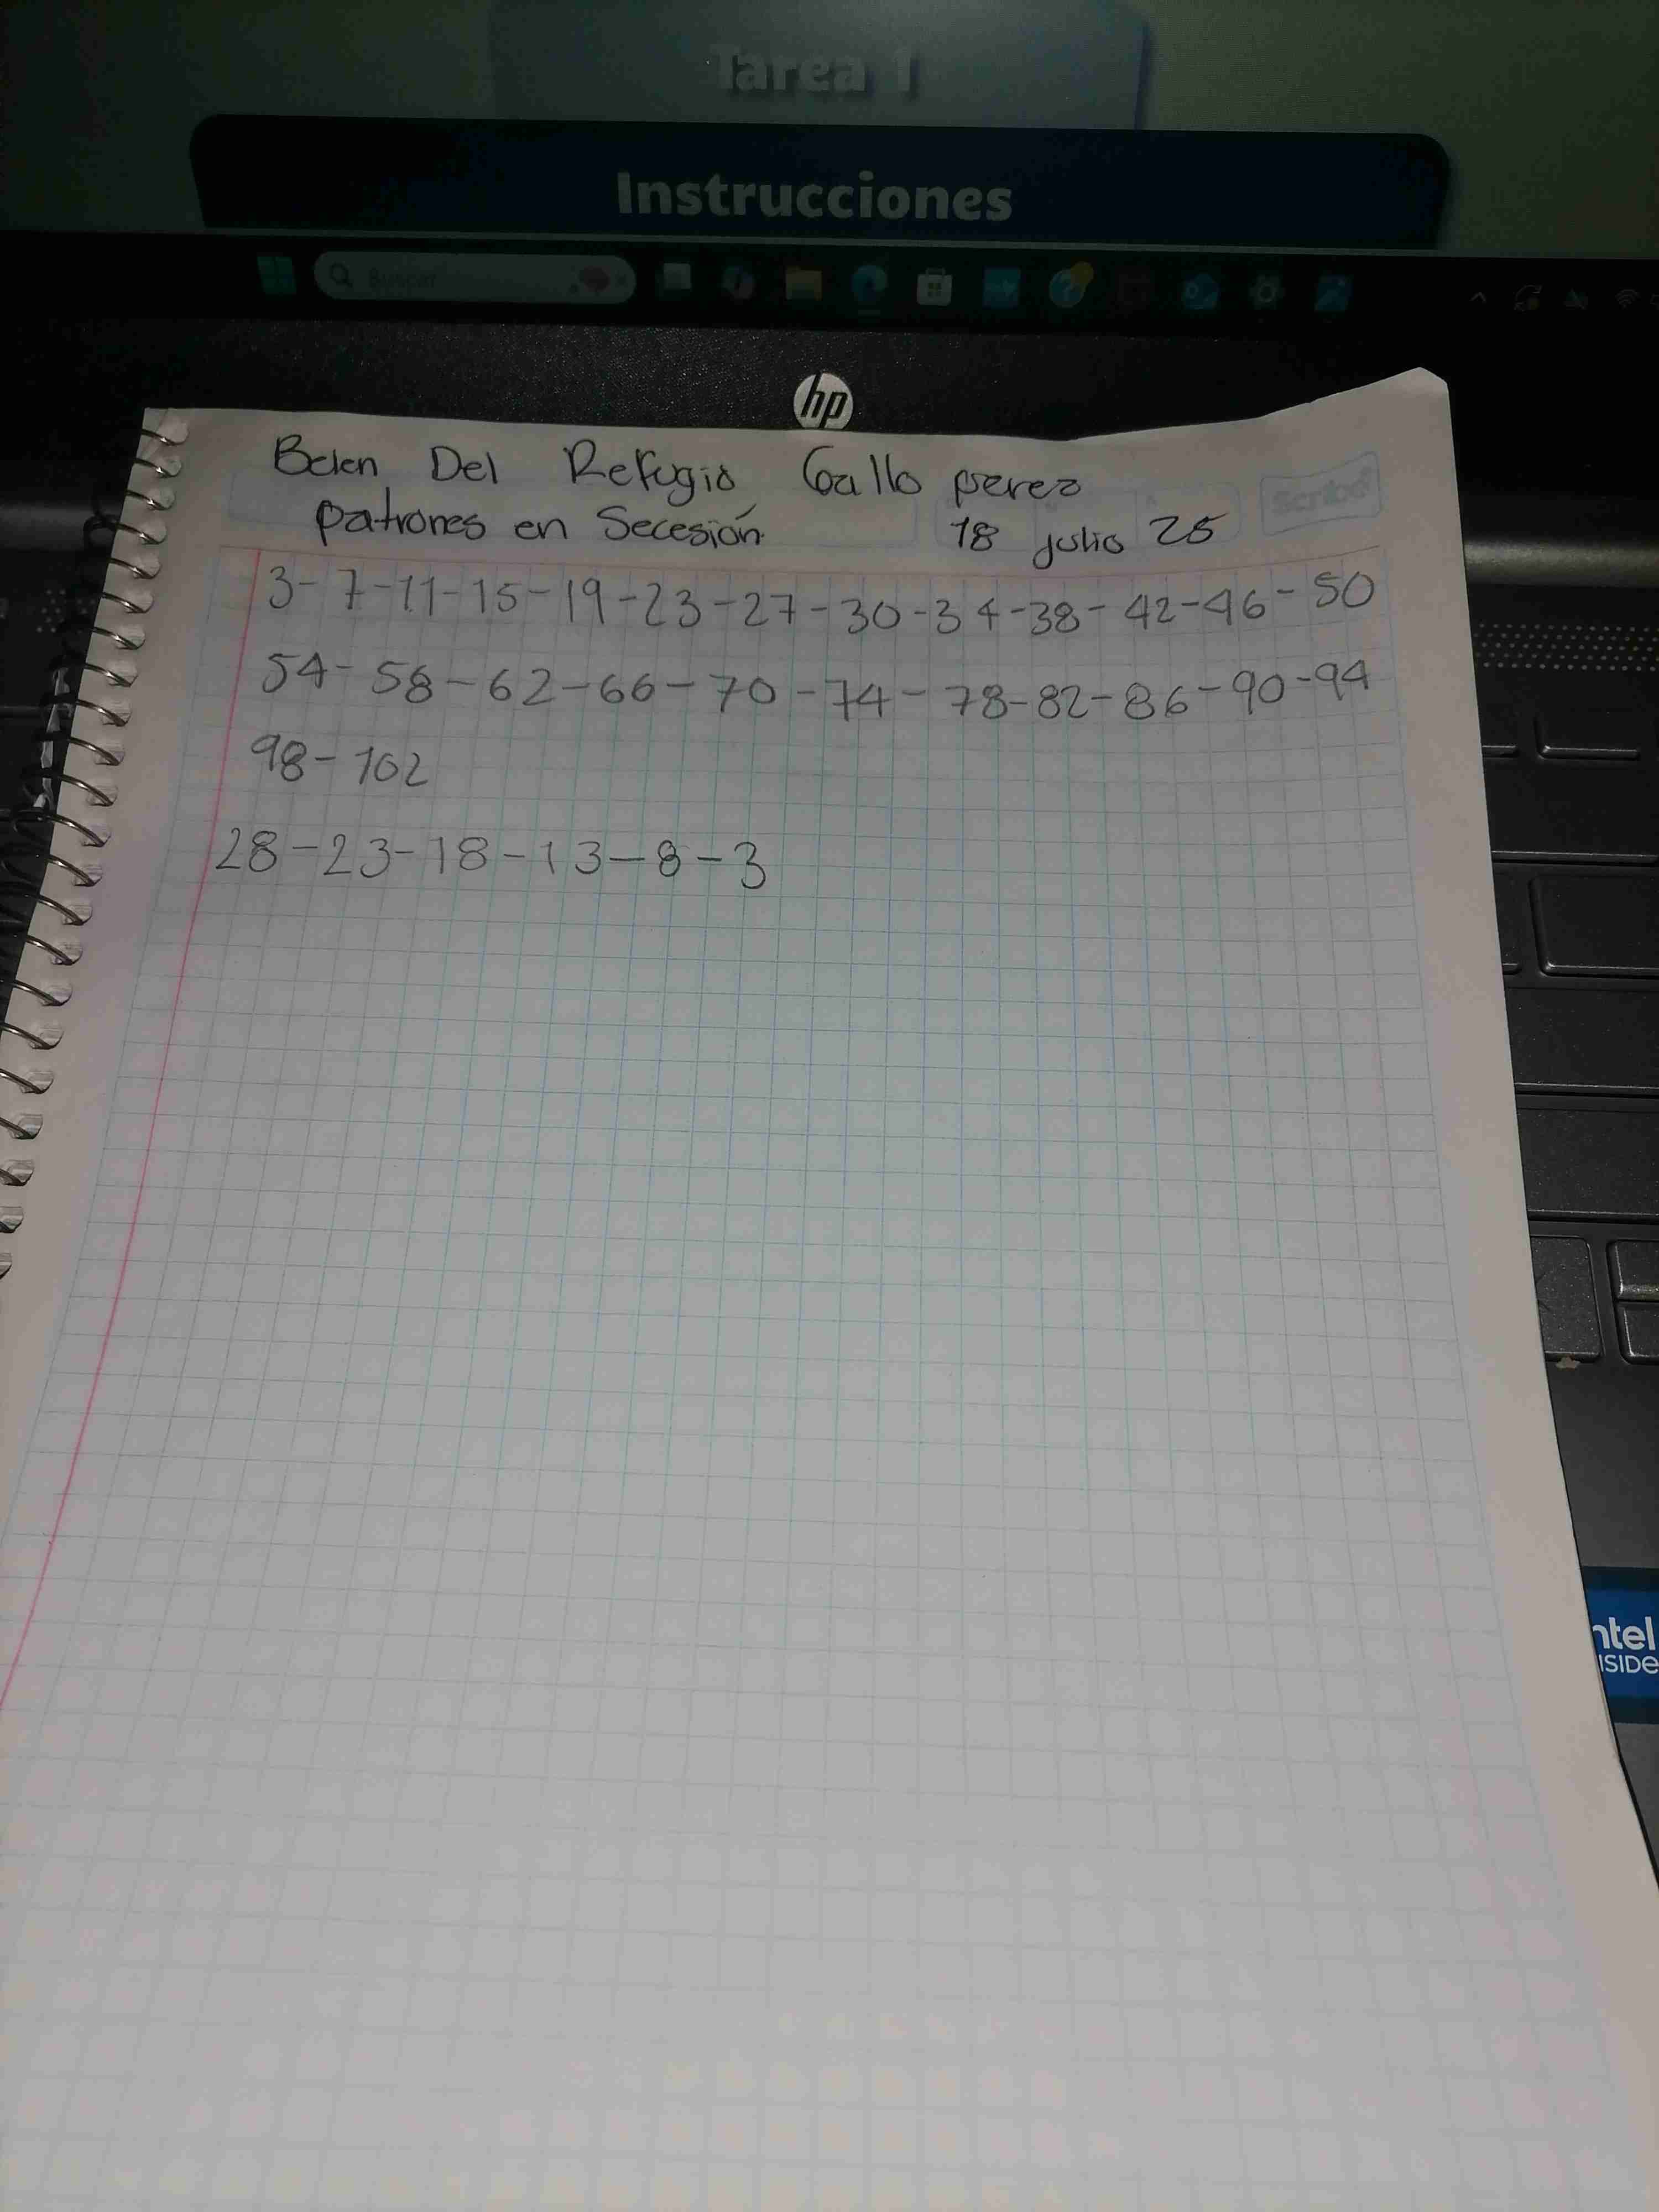 Tarea 1
Instrucciones
Buscar
hp
Belen Del Refugio Gallo perez
Scribe
patrones en Secesión
18 julio 25
3-7-11-15-19-23-27-30-34-38-42-46-50
54-58-62-66-70-74-78-82-86-90-94
98-102
28-23-18-13-8-3
intel
INSIDE